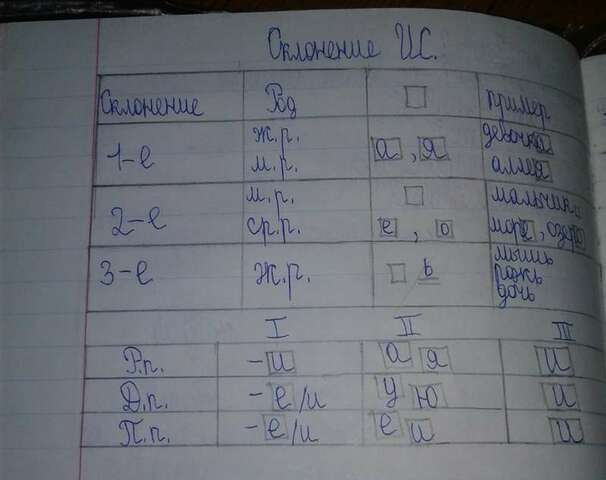 Склонение ИС.
Склонение Род □ пример
1-е ж.р. м.р. а, я девочка аллея
2-е м.р. ср.р. □ е, о мальчик□ море, озеро
3-е ж.р. □ ь мышь рожь дочь
I II III
Р.п. -и а я и
Д.п. -е/и у ю и
П.п. -е/и е и и